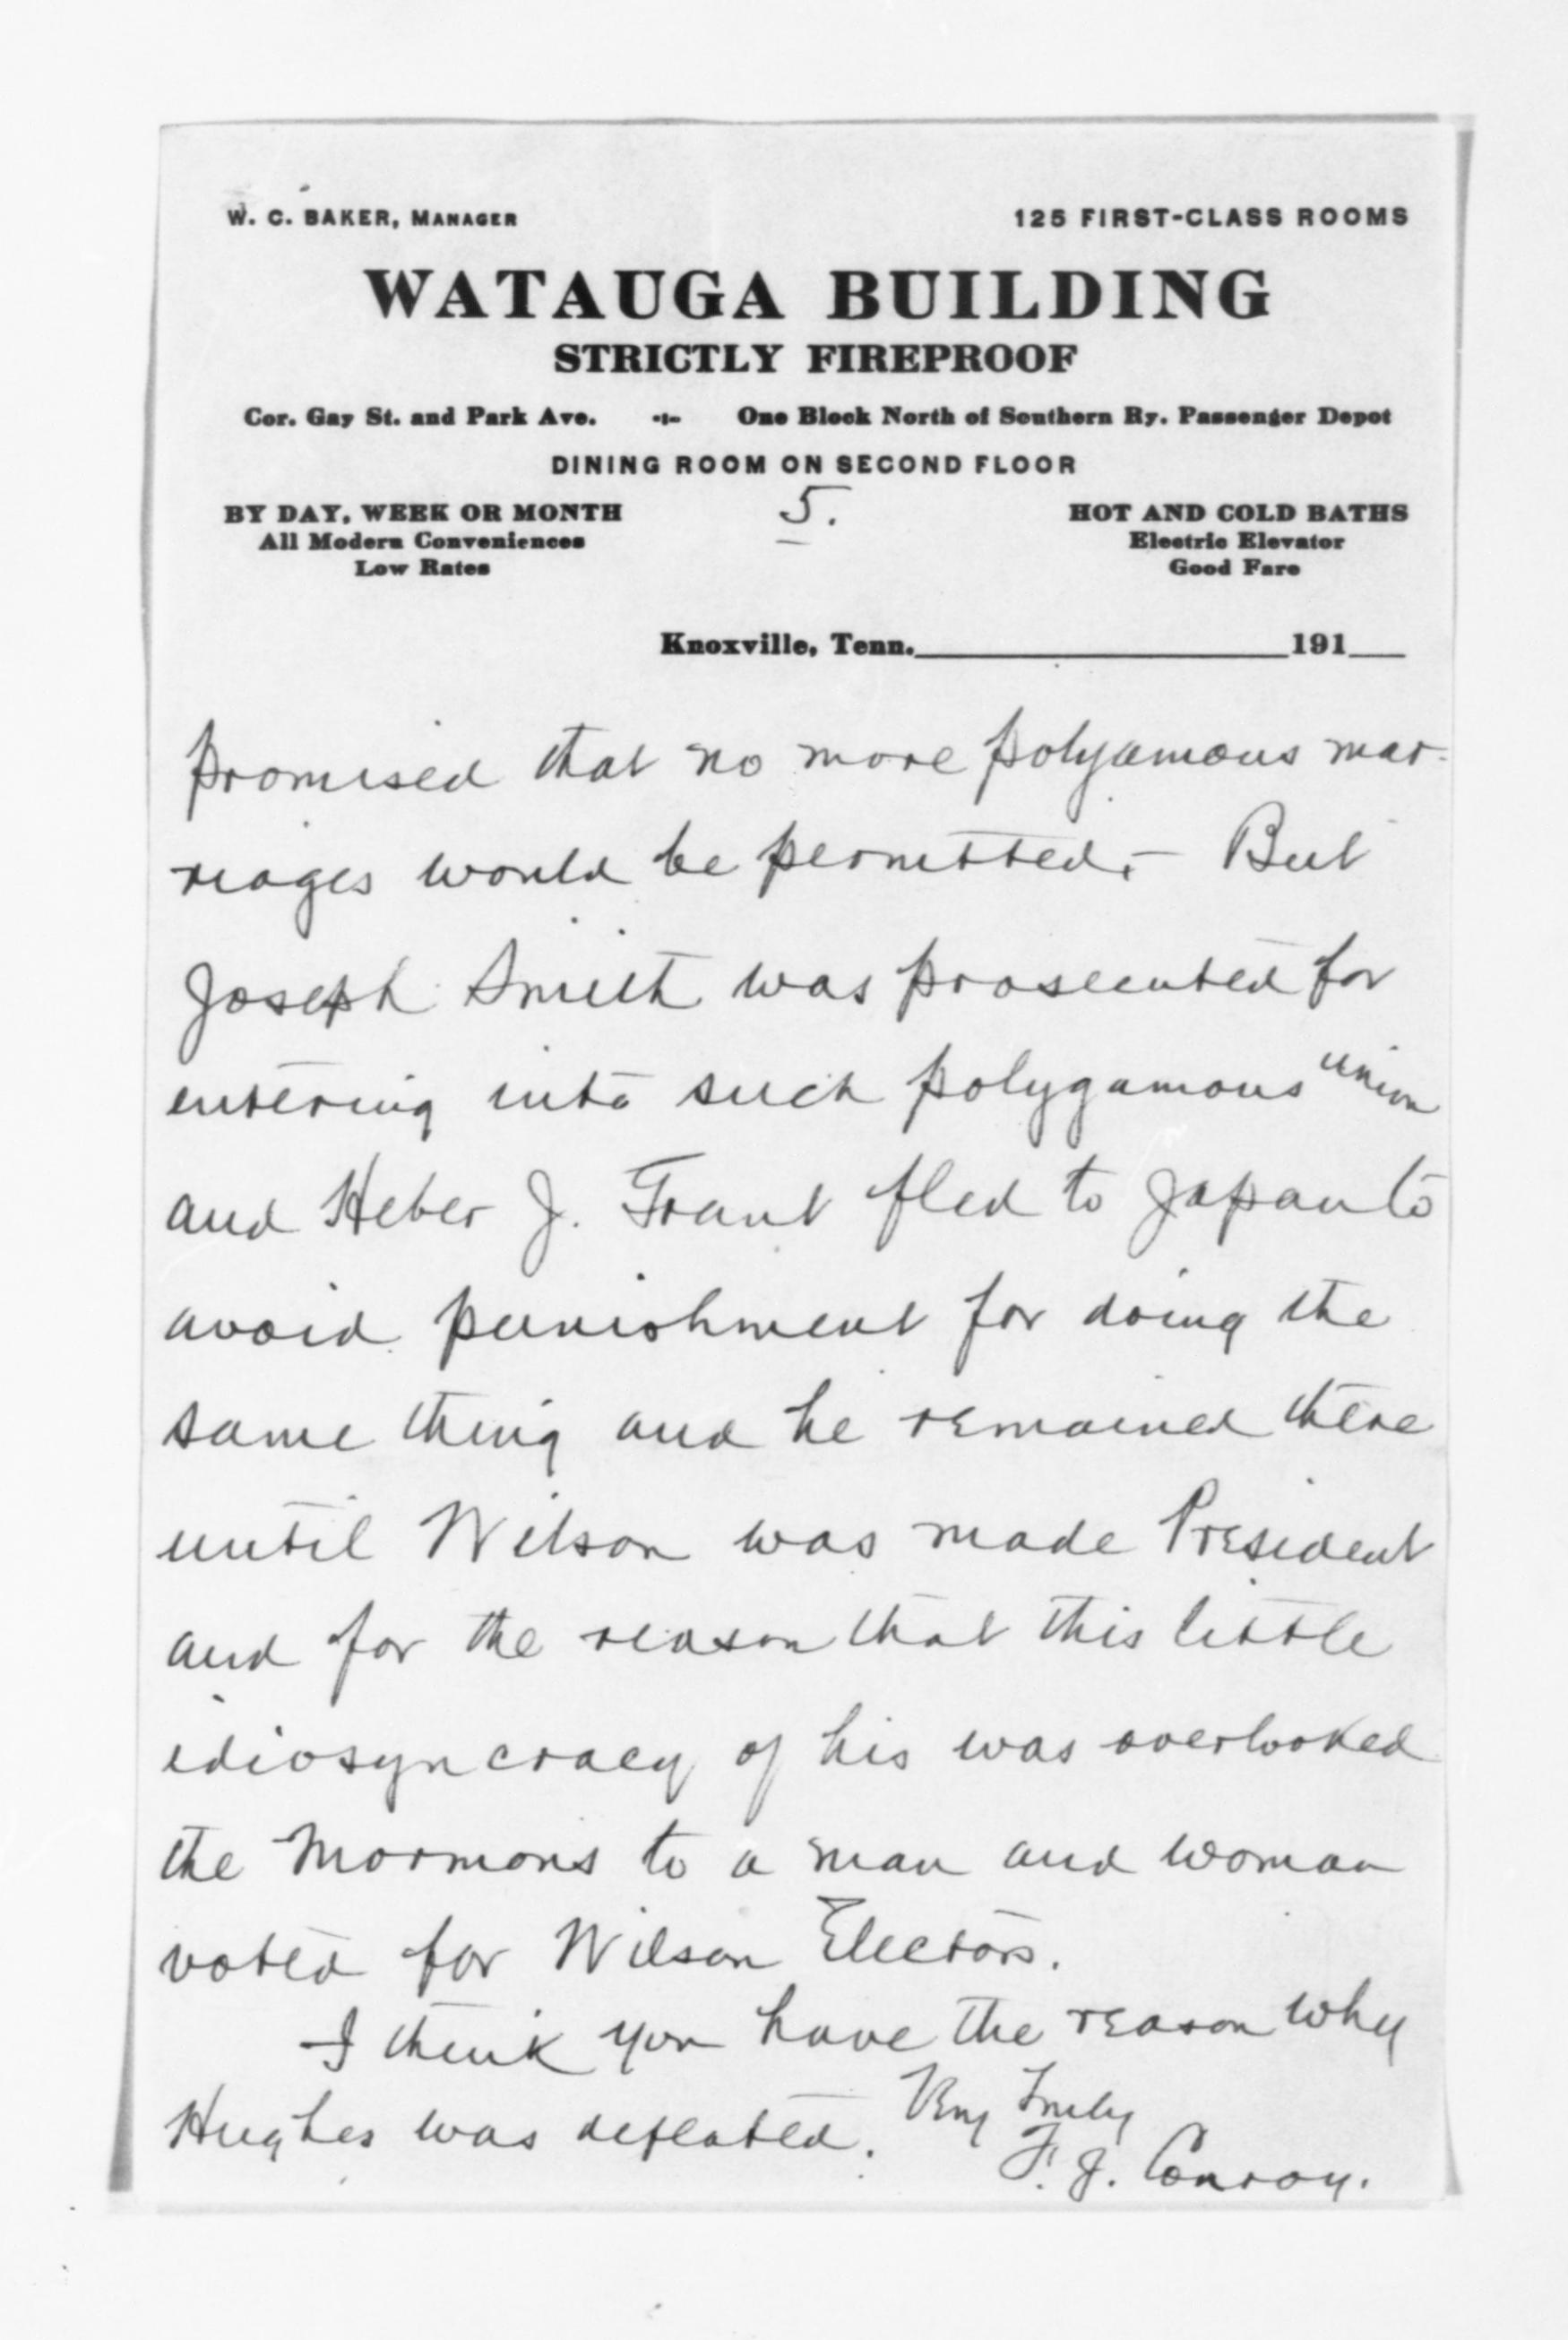 W. C. BAKER, MANAGER 125 FIRST-CLASS ROOMS
WATAUGA BUILDING
STRICTLY FIREPROOF
Cor. Gay St. and Park Ave. One Block North of Southern Ry. Passenger Depot
DINING ROOM ON SECOND FLOOR
BY DAY, WEEK OR MONTH 5. HOT AND COLD BATHS
All Modern Conveniences Electric Elevator
Low Rates Good Fare
Knoxville, Tenn. 191
promised that no more polyamous mar-
riages would be permitted. — But
Joseph Smith was prosecuted for
entering into such polygamous union
and Heber J. Grant fled to Japan to
avoid punishment for doing the
same thing and he remained there
until Wilson was made President
and for the reason that this little
idiosyncracy of his was overlooked
the Mormons to a man and woman
voted for Wilson Electors.
I think you have the reason why
Hughes was defeated. Very Truly
F. J. Conroy.